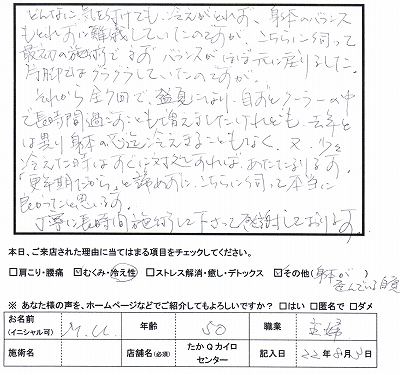 どんなに気を付けても、冷えがとれず、身体のバランス
もとれずに難儀していたのですが、こちらに伺って
最初の施術でまずバランスがほぼ元に戻りました。
片脚ではグラグラしていたのですが。
それから全9回で、盛夏になり、自宅とクーラーの中
で長時間過ごすことも増えましたけれども、去年と
は異り身体の芯迄冷えきることもなく、又、少々
冷えた時はすぐに対処すれば、あたたまります。
「更年期だから」と諦めずに、こちらに伺って本当に
良かったと思います。
丁寧に長時間施術して下さって感謝しております。
本日、ご来店された理由に当てはまる項目をチェックしてください。
□肩こり・腰痛 ☑むくみ・冷え性 □ストレス解消・癒し・デトックス ☑その他(身体が歪んでいる自覚)
※ あなた様の声を、ホームページなどでご紹介してもよろしいですか? □はい □匿名で □ダメ
お名前 (イニシャル可) M.U. 年齢 50 職業 主婦
施術名 店舗名(必須) たかQカイロセンター 記入日 22年8月3日